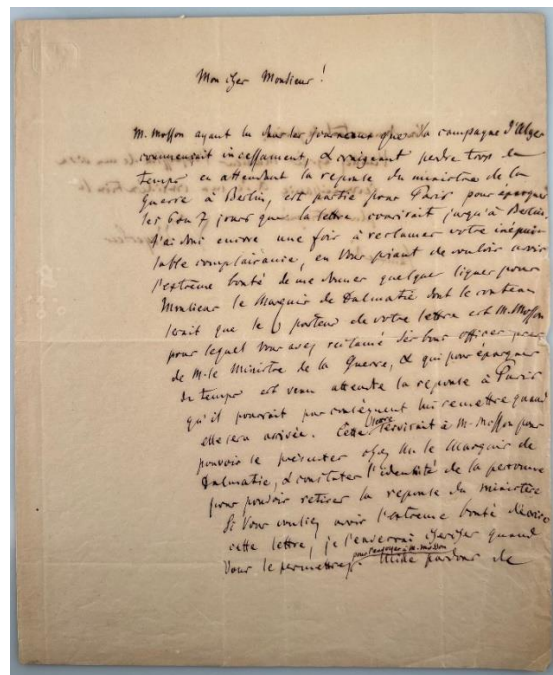 Mon cher Monsieur!
M. Mosson ayant lu dans les journeaux que la campagne d'Alger
commencait incessament, & craigeant perdre trop de
temps en attendant la reponse du ministre de la
Guerre à Berlin, est partie pour Paris pour épargner
les 6 ou 7 jours que la lettre courirait jusqu'à Berlin.
J'ai donc encore une fois à reclamer votre inépui-
sable complaisance, en Vous priant de vouloir avoir
l'extrême bonté de me donner quelque lignes pour
Monsieur le Marquis de Dalmatie dont le contenu
serait que le porteur de votre lettre est M. Mosson
pour lequel vous avez reclamé des bons offices près
de M. le Ministre de la Guerre, & qui pour épargner
du temps est venu attendre la reponse à Paris
qu'il pourrait par conséquent lui remettre quand
elle sera arrivée. Cette lettre servirait à M. Mosson pour
pouvoir se présenter chez Mr le Marquis de
Dalmatie, & constater l'identité de la personne
pour pouvoir retirer la reponse du ministère
Si Vous vouliez avoir l'extreme bonté d'écrire
cette lettre, je l'enverrai chercher quand
Vous le permettrez, pour l'envoyer à M. Mosson. Mille pardons de